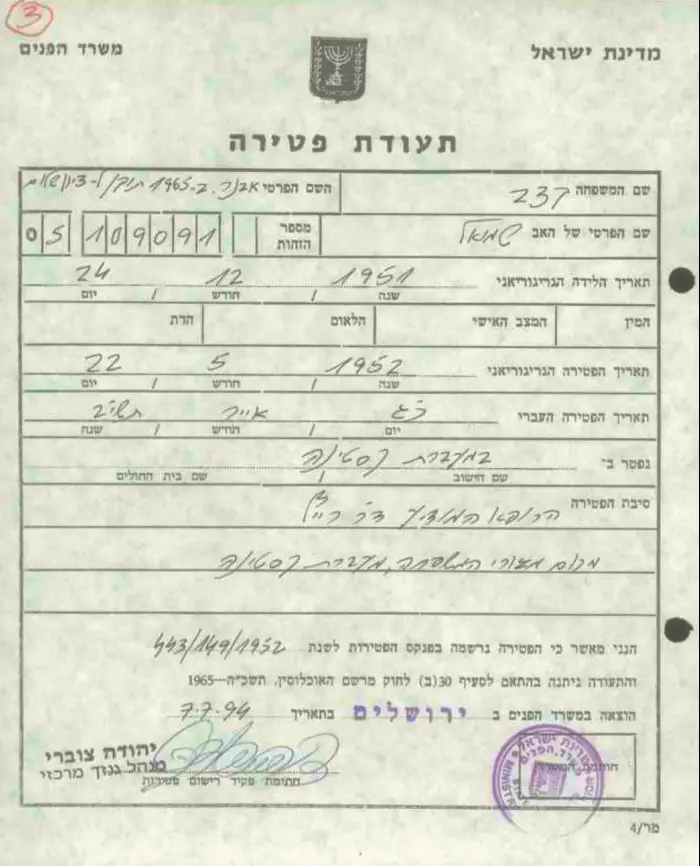 3
מדינת ישראל
משרד הפנים
תעודת פטירה
שם המשפחה
השם הפרטי אבנר, ב-1965 תוקן ל-ציון שלום
שם הפרטי של האב שמואל
מספר הזהות 05 109091
תאריך הלידה הגריגוריאני 1951 12 24
שנה / חודש / יום
המין המצב האישי הלאום הדת
תאריך הפטירה הגריגוריאני 1952 5 22
שנה / חודש / יום
תאריך הפטירה העברי כ"ג אייר תשי"ב
יום / חודש / שנה
נפטר ב־ במעברת קסטינה
שם הישוב / שם בית החולים
סיבת הפטירה הרופא המודיע ד"ר
מקום מגורי המשפחה, מעברת קסטינה
הנני מאשר כי הפטירה נרשמה בפנקס הפטירות לשנת 443/149/1952
והתעודה ניתנה בהתאם לסעיף 30(ב) לחוק מרשם האוכלוסין, תשכ"ה—1965
הוצאה במשרד הפנים ב ירושלים בתאריך 7.7.94
יהודה צוברי
מנהל גנזך מרכזי
חתימת פקיד רישום פטירות
חותמת המשרד
מדינת ישראל
משרד הפנים
מר/4